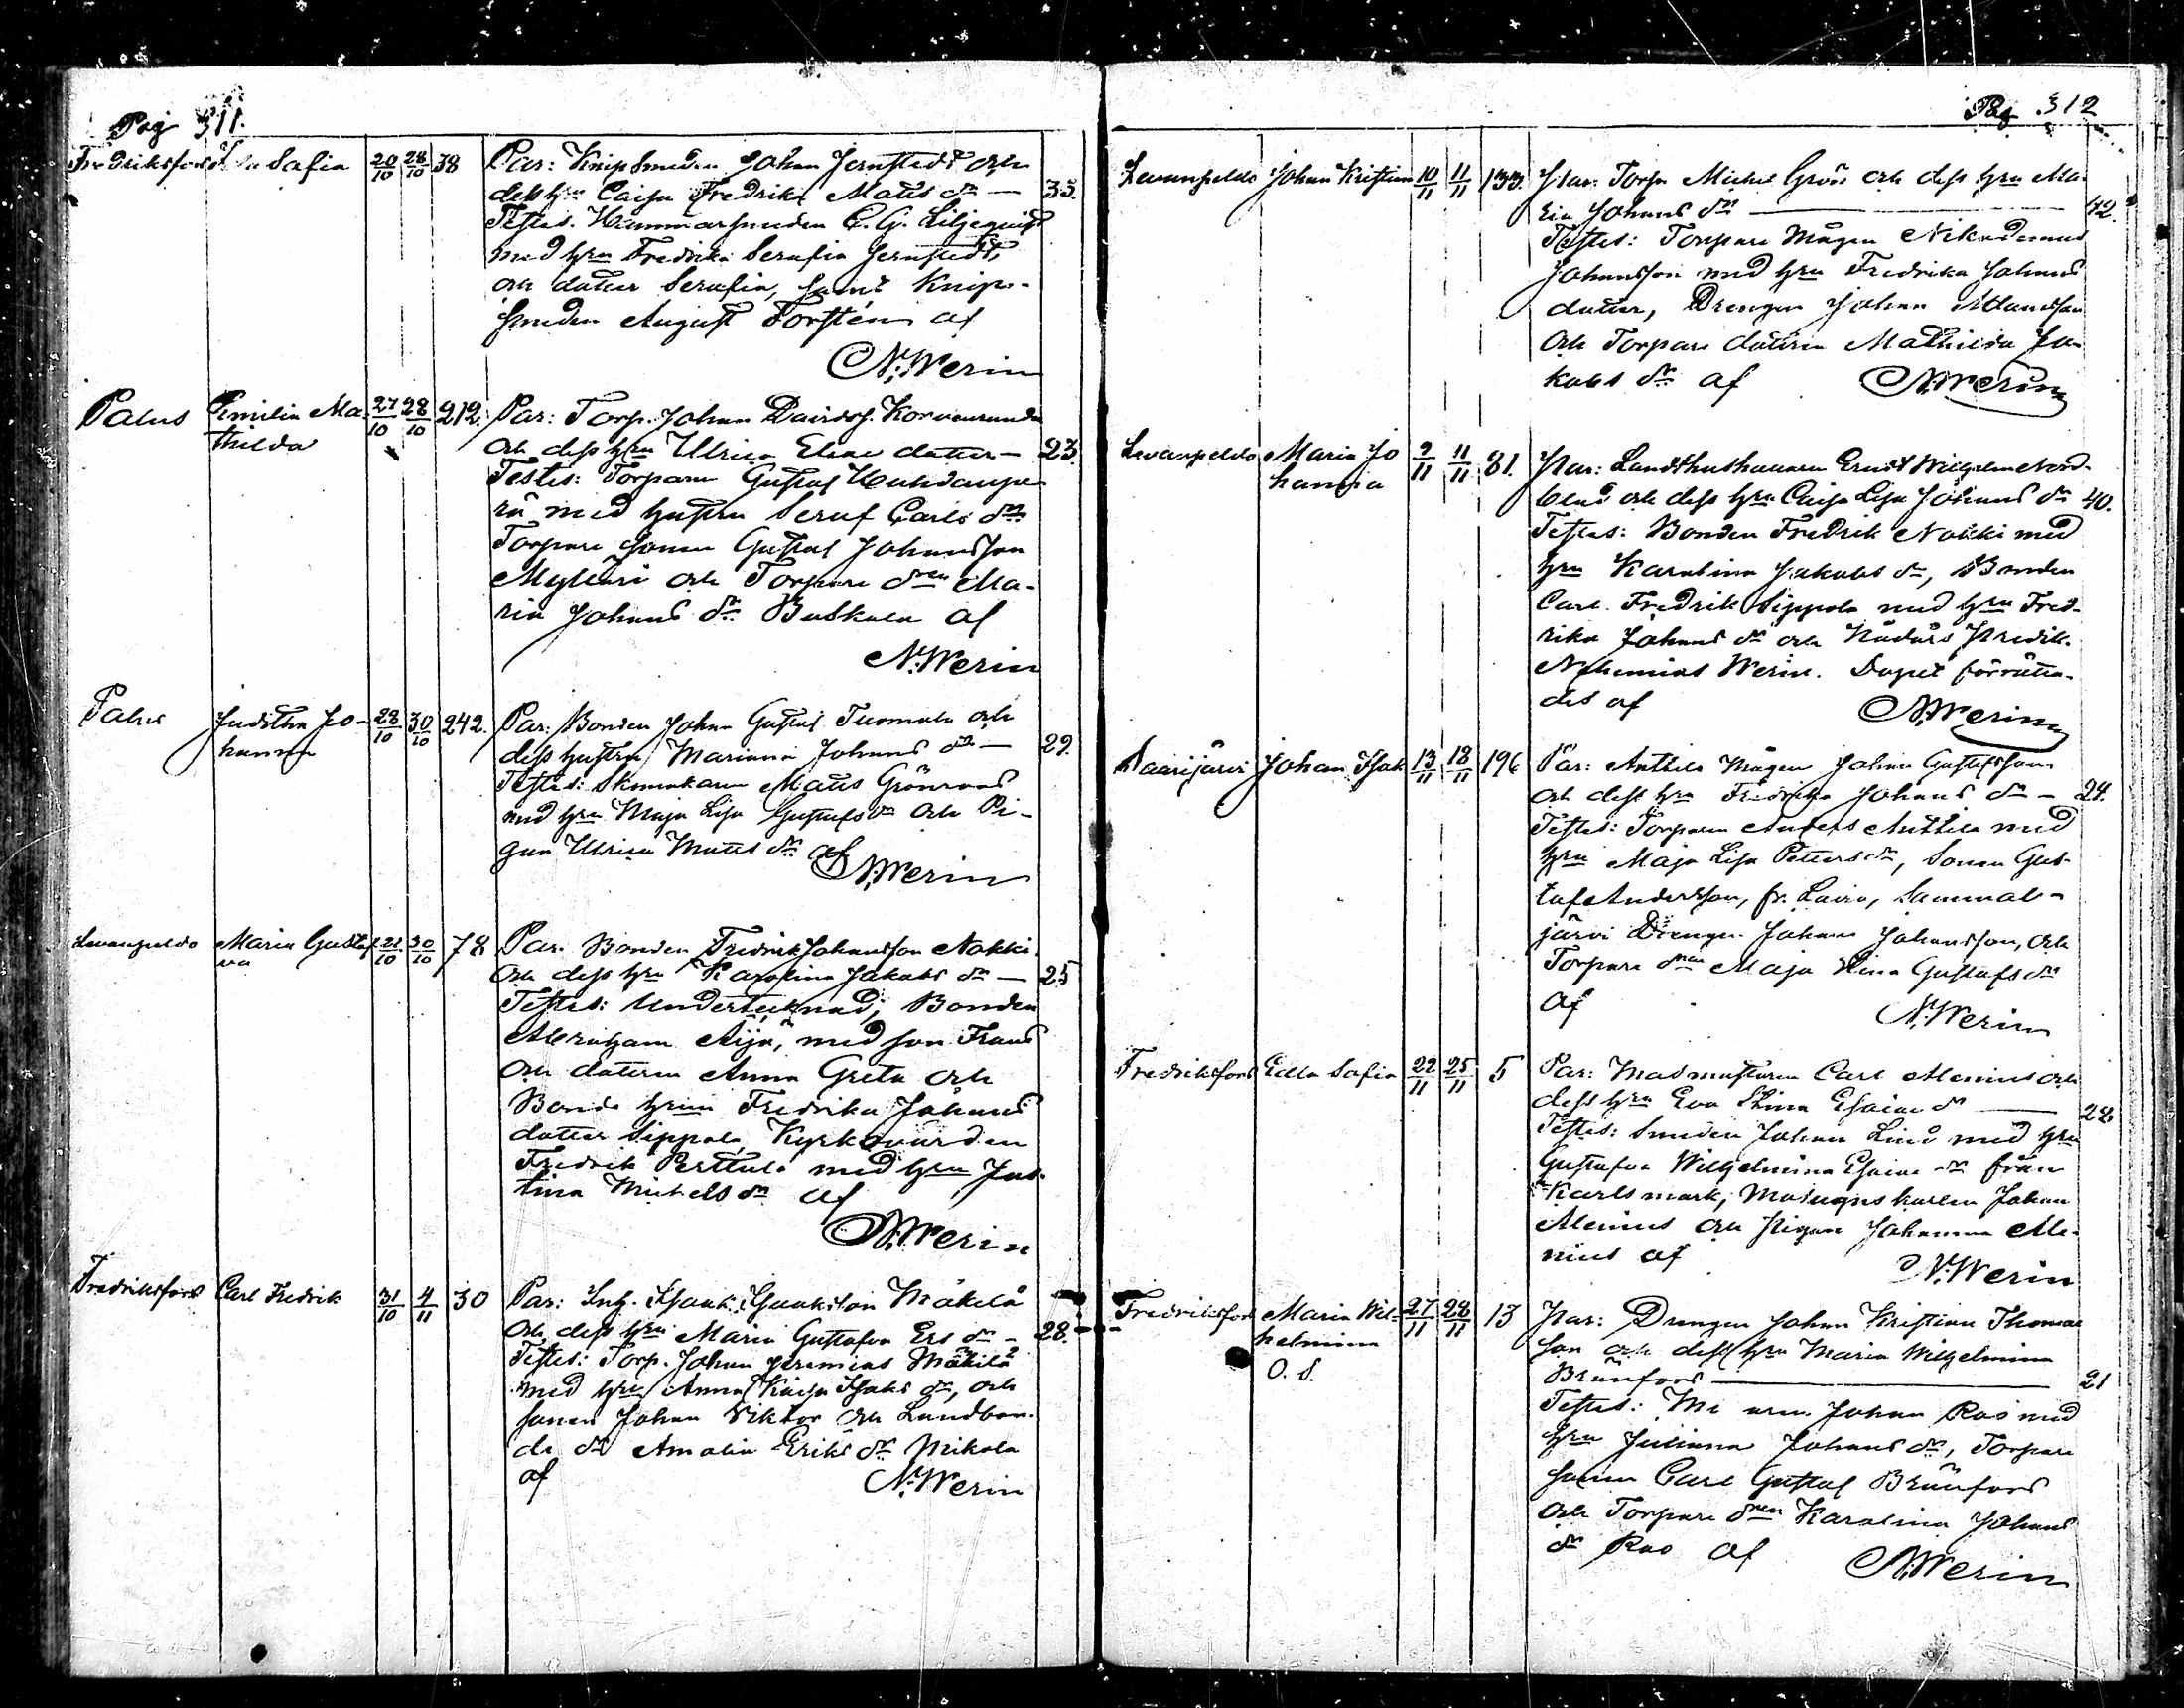 Pag 311.
Fredriksfors Safia 20/10 28/10 38 Par: Knipsmeden Johan Jernstedt och
dess hru Caisa Fredrika Matts dr — 35.
Testes. Hammarsmeden C. G. Liljequist
med hru Fredrika Serafia Jernstedt,
och dotter Serafia, samt Knip-
smeden August Forstén af
N. Werin
Palus Emilia Ma- 27/10 28/10 212. Par: Torp. Johan Davidss. Korvenranda
thilda och dess hru Ulrica Elias dotter — 23.
Testes: Torparen Gustaf
rä med hustru Seraf Carls dr
Torpare sonen Gustaf Johansson
Mylläri och Torpare dren Ma-
ria Johans dr Buskala af
N. Werin
Palus Juditha Jo- 28/10 30/10 242. Par: Bonden Johan Gustaf Tuomala och
hanna dess hustru Mariana Johans dr — 29.
Testes: Skomakaren Matts Grönroos
med hru Maja Lisa Gustafs dr och Pi-
gan Ulrica Matts dr af
N. Werin
Levanpelds Maria Gustaf 21/10 30/10 78 Par. Bonden Fredrik Johansson Nokki
va och dess hru Karolina Jakobs dr — 25
Testes: Undertecknad, Bonden
Abraham Äijä, med son Frans
och dottren Anna Greta och
Bonde hrun Fredrika Johans
dotter Sippola, Kyrkovärden
Fredrik Perttula med hru Jus-
tina Michels dr af
N. Werin
Fredriksfors Carl Fredrik 31/10 4/11 30 Par: Inh. Isaak Isaaksson Mäkelä
och dess hru Maria Gustafva Ers dr — 28.
Testes: Torp. Johan Jeremias Mäkilä
med hru Anna Kaisa Isaks dr, och
sonen Johan Viktor och Landbon-
de dr Amalia Eriks dr Mikola
af N. Werin
Pag 312
Levanpelds Johan Kristian 10/11 11/11 133. Par: Torp. Michel Grös och dess hru Ma-
ria Johans dr — 42.
Testes: Torpare Mågen Nikodemus
Johansson med hru Fredrika Johans
dotter, Drengen Johan
och Torpare dottren Mathilda Ja-
kobs dr af N. Werin
Levanpelds Maria Jo 9/11 11/11 81. Par: Landthushaaren Ernst Wilhelm Nord-
hanna och dess hru Caisa Lisa Johans dr 40.
Testes: Bonden Fredrik Nokki med
hru Karolina Jakobs dr, Bonden
Carl Fredrik Sippola med hru Fred-
rika Johans dr och Nådårs Predik.
Nehemias Werin. Dopet förrätta-
des af N. Werin
Saarijärvi Johan Isak 13/11 18/11 196 Par: Anttila Mågen Johan Gustafsson
och dess hru Fredrika Johans dr — 24.
Testes: Torparen Anders Anttila med
hru Maja Lisa Petters dr, Sonen Gus-
taf Andersson, fr. Lavia, Sammal-
järvi Drengen Johan Johansson, och
Torpare dren Maja Stina Gustafs dr
af N. Werin
Fredriksfors Edla Safia 22/11 25/11 5 Par: Masmästaren Carl Alenius och
dess hru Eva Stina Esaiae dr — 28
Testes: Smeden Johan Lind med hru
Gustafva Wilhelmina Esaiae dr från
Karlsmark, Masugns karlen Johan
Alenius och Pigan Johanna Ale-
nius af N. Werin
Fredriksfors Maria Wil- 27/11 28/11 13 Par: Drengen Johan Kristian Thomas
helmina son och dess hru Maria Wilhelmina
O. S. Bränfors — 21
Testes: Johan Ras med
hru Juliana Johans dr, Torpare
sonen Carl Gustaf Bränfors
och Torpare dren Karolina Johans
dr Ras af N. Werin